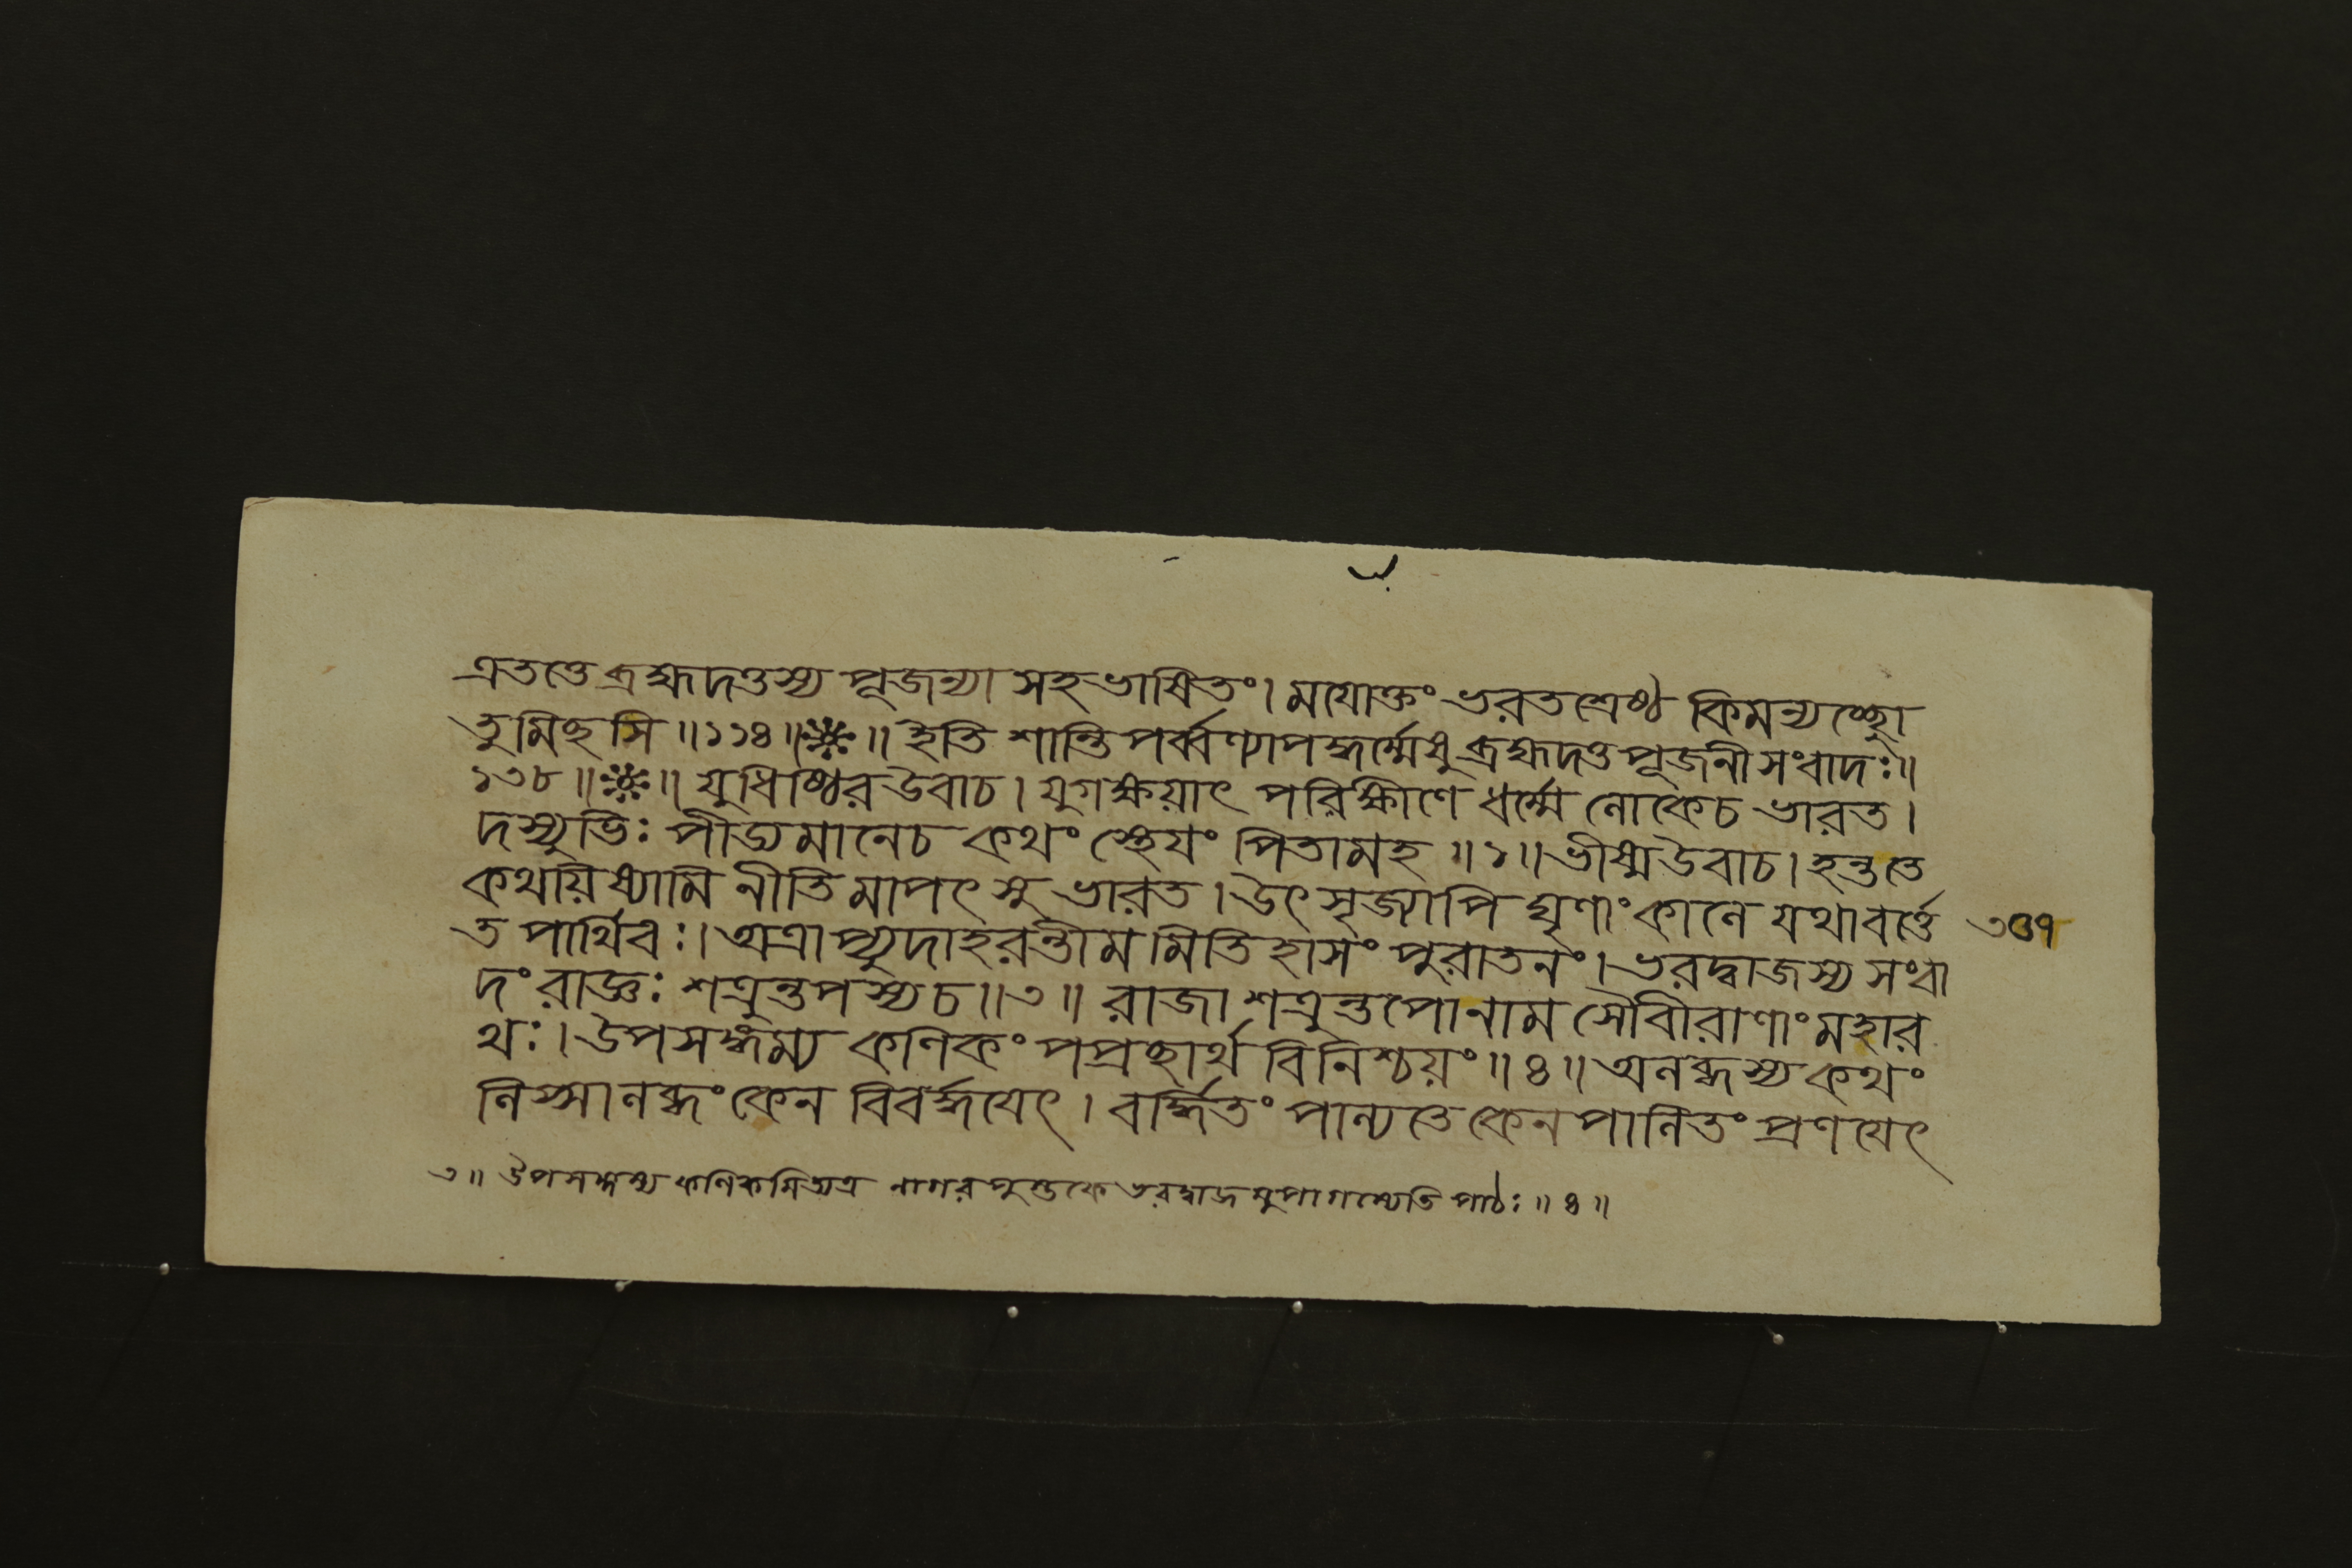 এতত্তে ব্রহ্মদত্তস্য পূজন্যা সহ ভাষিতং। ময়োক্তং ভরতশ্রেষ্ঠ কিমন্যচ্ছ্রো
তুমিছসি॥১১৪॥❈॥ ইতি শান্তিপর্ব্বণ্যাপদ্ধর্ম্মেষু ব্রহ্মদত্ত পূজনী সংবাদঃ॥
১৩৮॥❈॥ যুধিষ্ঠির উবাচ। যুগক্ষয়াৎ পরিক্ষীণে ধর্ম্মে লোকেচ ভারত।
দস্যুভিঃ পীড্যমানেচ কথং স্থেয়ং পিতামহ॥১॥ ভীষ্ম উবাচ। হন্ততে
কথয়িষ্যামি নীতিমাপৎসু ভারত। উৎসৃজ্যাপি ঘৃণাং কালে যথা বর্ত্তে
ত পার্থিবঃ। অত্রাপ্যুদাহরন্তীমমিতিহাসং পুরাতনং। ভরদ্বাজস্য সংবা
দং রাজ্ঞঃ শত্রুন্তপস্যচ॥৩॥ রাজা শত্রুন্তপোনাম সৌবীরাণাং মহার
থঃ। উপসঙ্গম্য কণিকং পপ্রছার্থ বিনিশ্চয়ং॥৪॥ অলব্ধস্য কথং
লিপ্সা লব্ধং কেন বিবর্দ্ধয়েৎ। বর্দ্ধিতং পাল্যতে কেন পালিতং প্রণয়েৎ
৩৫৭
৩॥ উপসঙ্গম্য কণিকমিত্যত্র নাগর পুস্তকে ভরদ্বাজমুপাগম্যেতি পাঠঃ॥৪॥